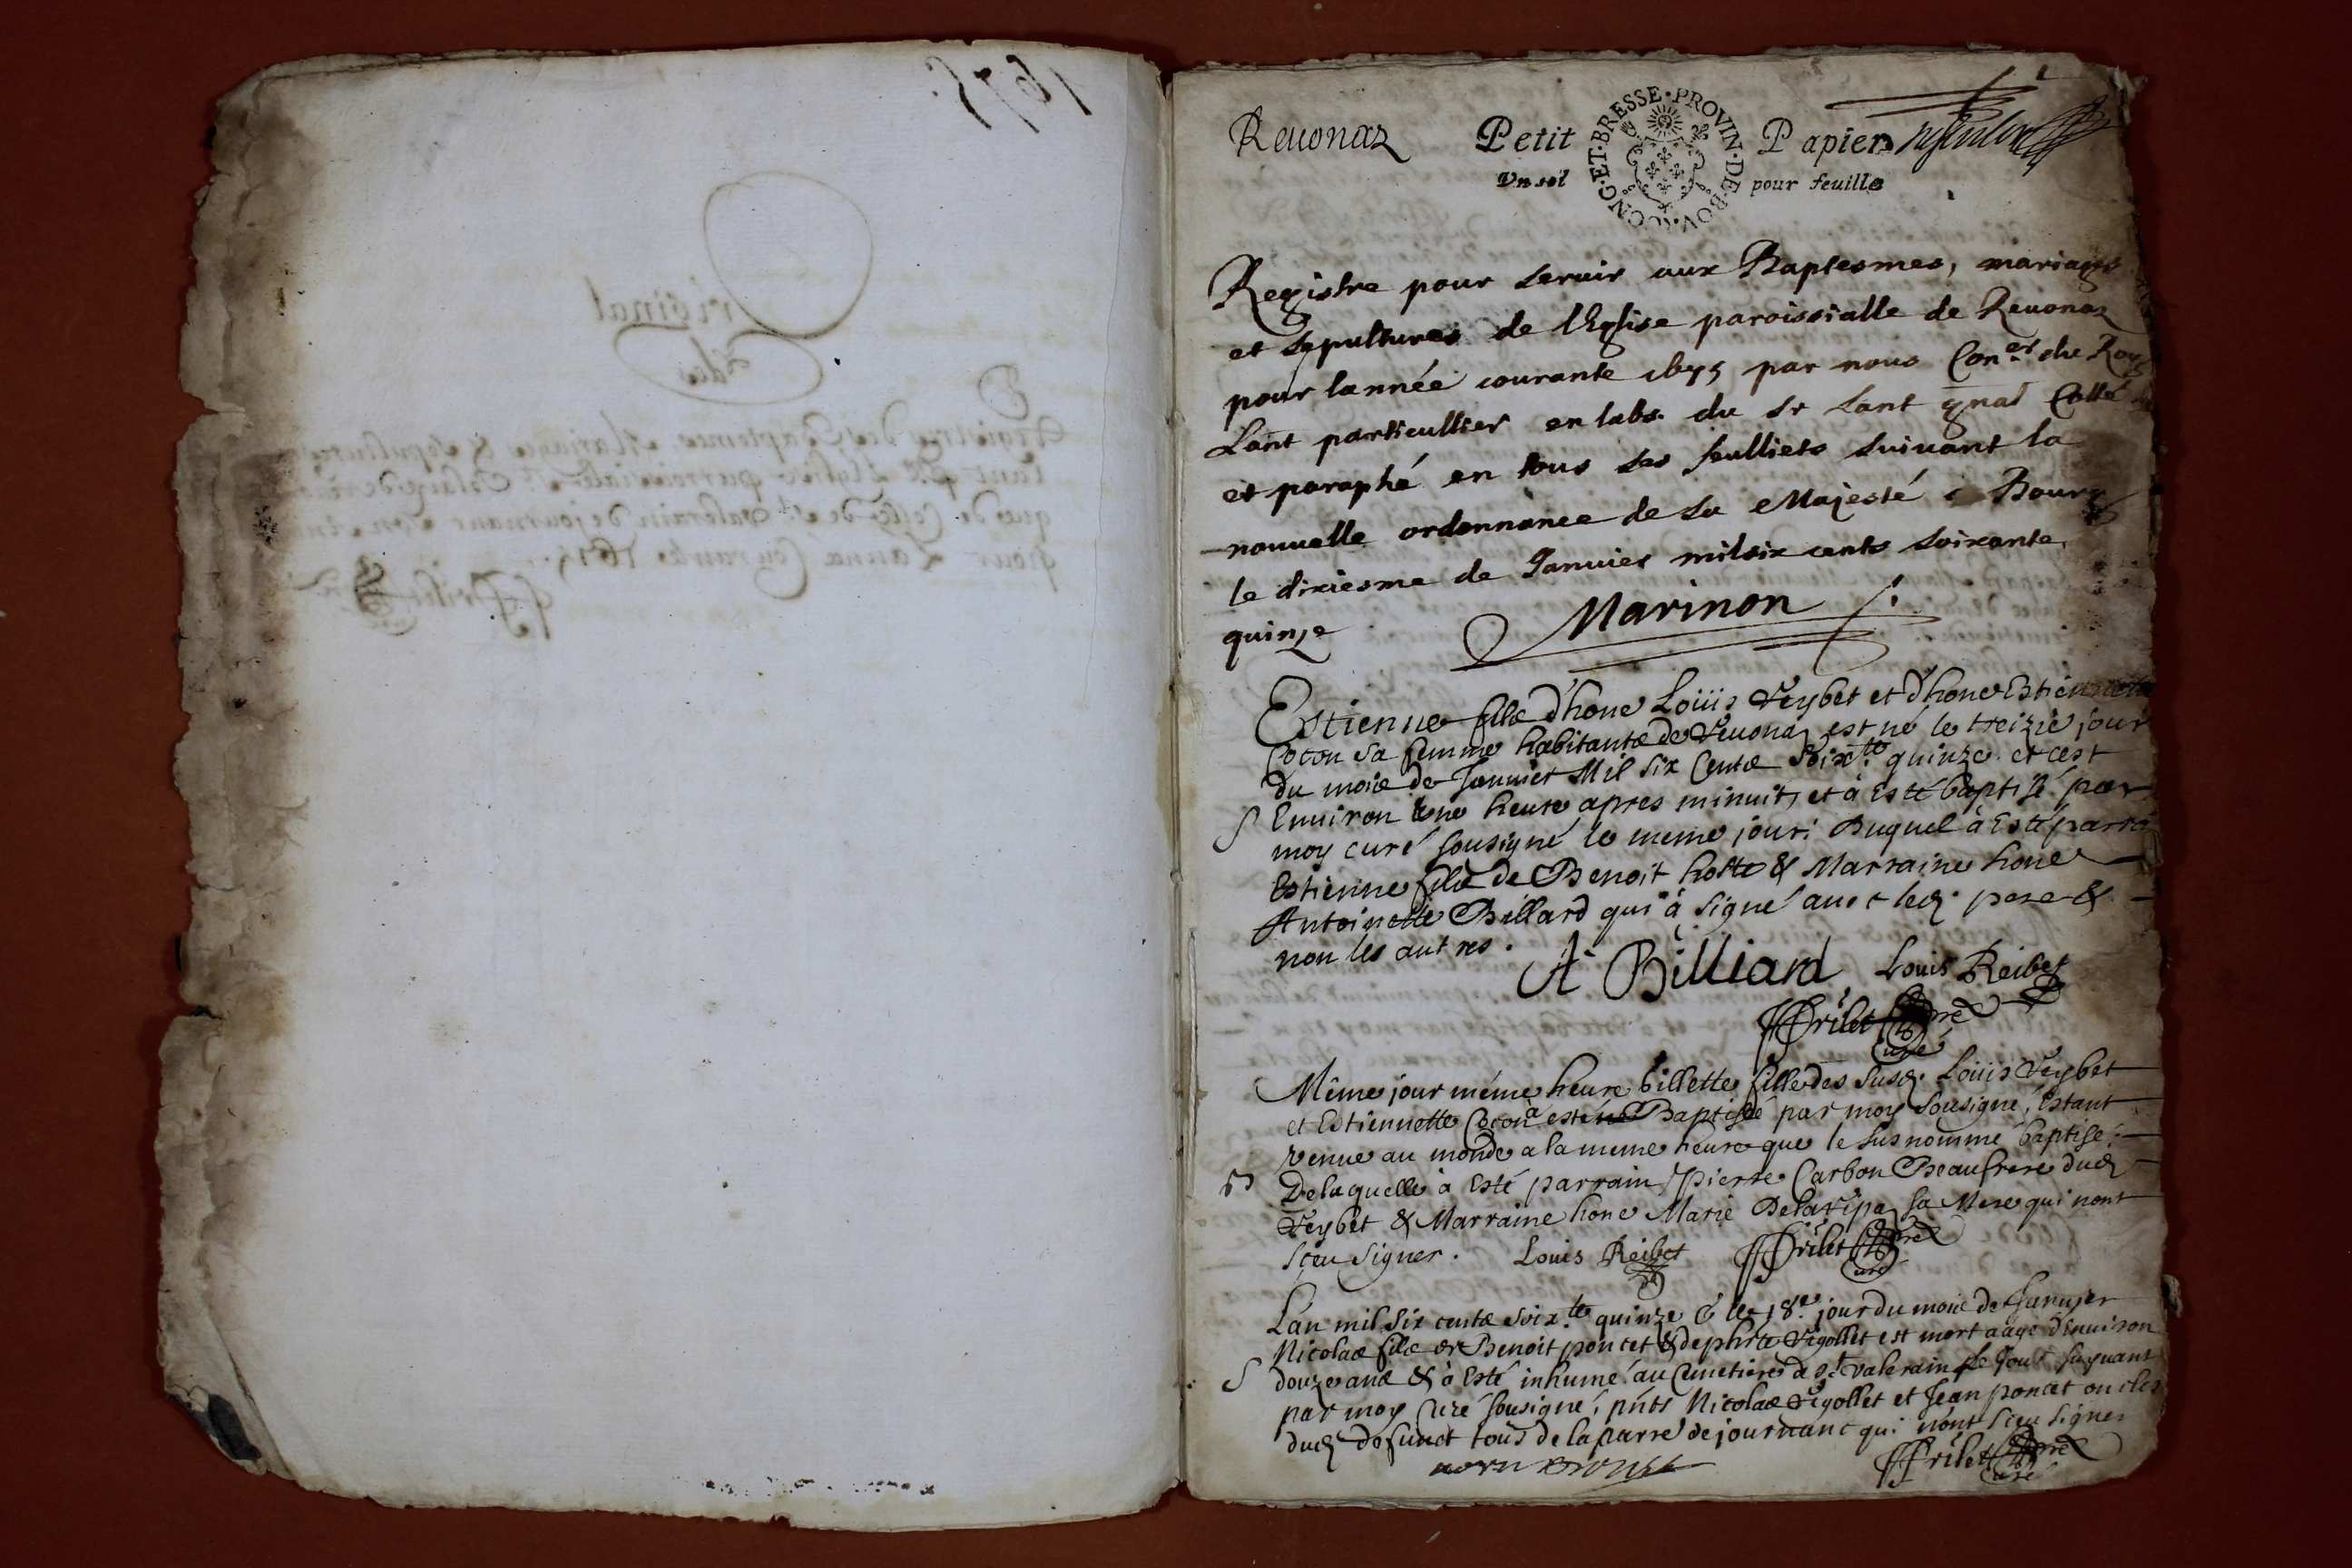 1675
Original
des
Registres des Baptemes, Mariages & sepultures
pour Lannee Courante 1675
Reuonaz
Petit Papier
Vn sol pour feuille
PROVIN·DE·BOVRGONG·ET·BRESSE·
Registre pour seruir aux Baptesmes, mariages
et sepultures de lEglise paroissialle de Reuonaz
pour lannée courante 1675 par nous Con.er du Roy
Lant particullier en labs. du sr Lant gnal Cotté
et paraphé en tous ses feulliets suivant la
nouuelle ordonnance de sa Majesté a Bourg
le dixiesme de Januier mil six cents soixante
quinze Marinon
Estienne filz d'hone Loüis Reybet et d'hone Estiennette
Cocon sa femme habitantz de Reuonaz est né le treizie jour
du mois de Januier Mil six Centz soix.te quinze et cest
Enuiron une heure apres minuit, et à Esté baptisé par
moy curé sousigné le meme jour; Duquel à Esté parrain
Estienne filz de Benoit hotte & Marraine hone
Antoinette Billard qui à signé auec led. pere &
non les autres.
A Billiard Louis Reibet
Frilet pre
Curé
Même jour méme heure billette fille des susd. Loüis Reybet
et Estiennette Cocon à esté Baptisée par moy sousigné, Estant
venue au monde a la meme heure que le susnommé baptisé;
De laquelle à Esté parrain Pierre Carbon Beaufrere dud
Reybet & Marraine hone Marie Delaripaz sa Mere qui nont
sceu signer. Louis Reibet Frilet pre
Curé
L'an mil six centz soix.te quinze & le 18e. jour du mois de Januier
Nicolas filz de Benoit poncet & de phrte Rigollet est mort aagé d'enuiron
douze ans & à Esté inhumé au Cimetiere de St. valerain le Jour suyuant
par moy Curé sousigné, pnts Nicolas Rigollet et Jean poncet oncles
dud defunct tous de la parre de journanc qui nont sceu signer
Frilet pre
Curé